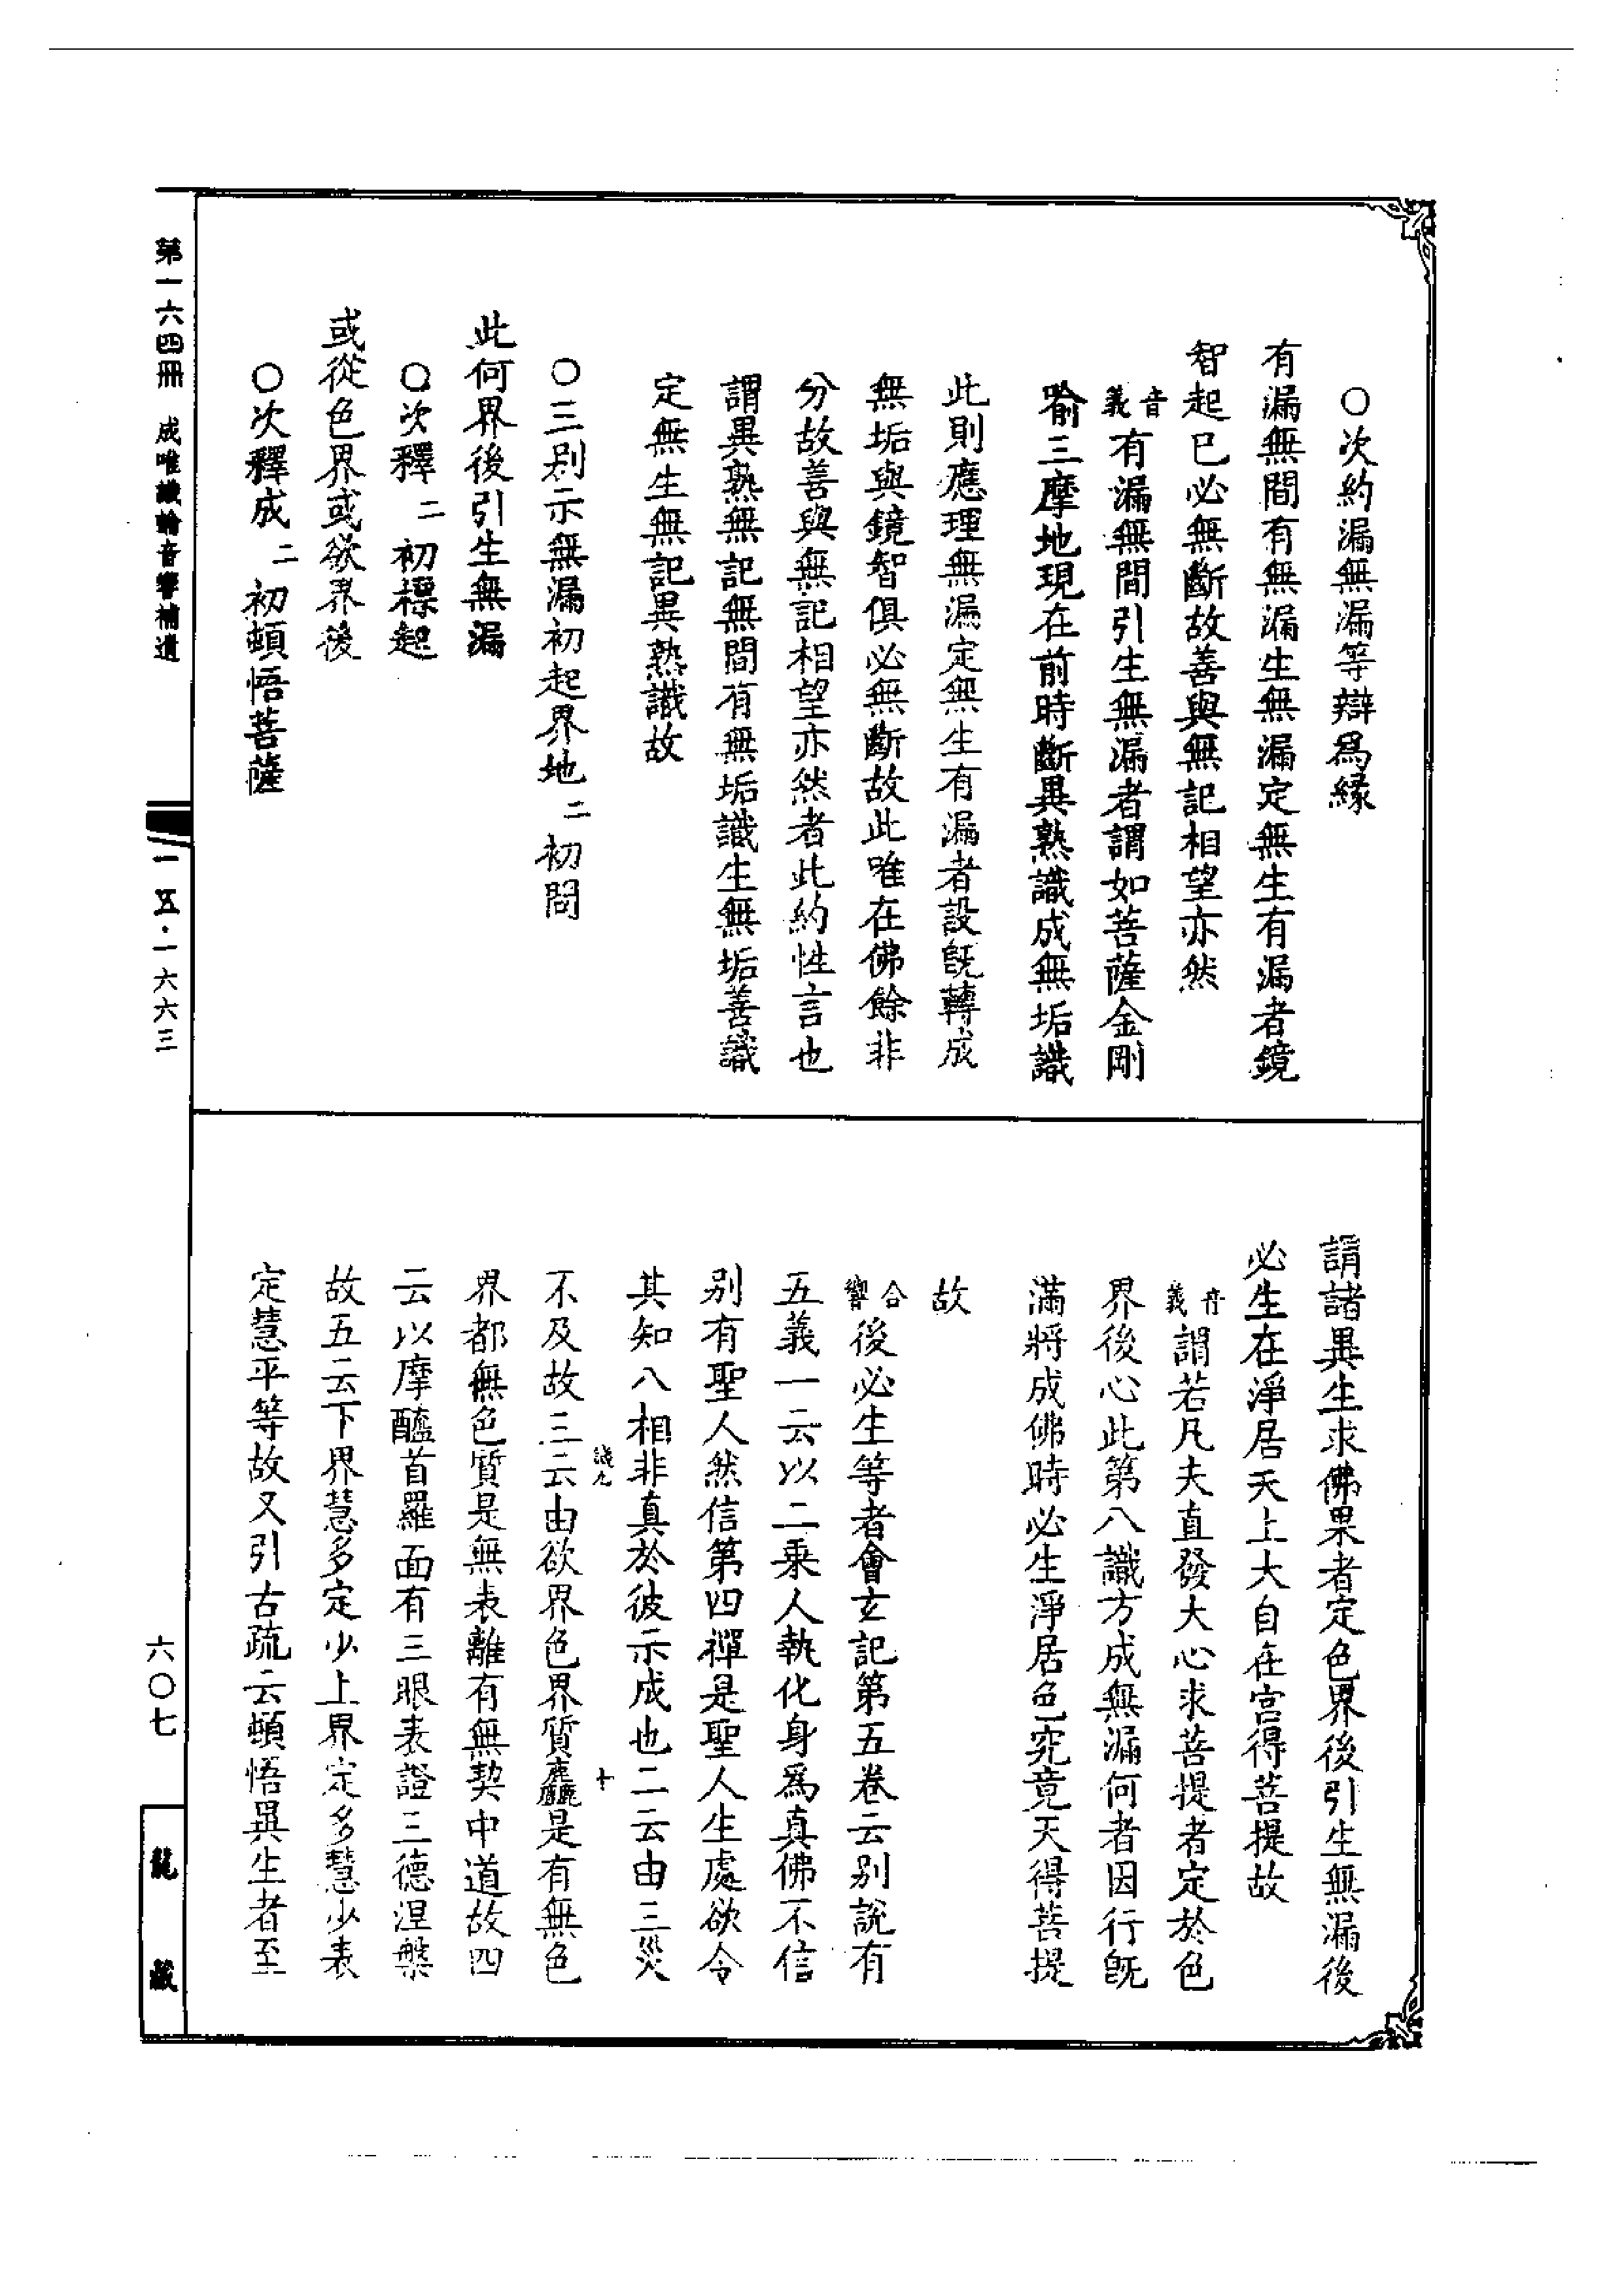 ○次約漏無漏等辯爲緣
有漏無間有無漏生無漏定無生有漏者鏡
智起已必無斷故善與無記相望亦然
音義有漏無間引生無漏者謂如菩薩金剛
喻三摩地現在前時斷異熟識成無垢識
此則應理無漏定無生有漏者設旣轉成
無垢與鏡智俱必無斷故此唯在佛餘非
分故善與無記相望亦然者此約性言也
謂異熟無記無間有無垢識生無垢善識
定無生無記異熟識故
○三別示無漏初起界地二 初問
此何界後引生無漏
○次釋二 初標起
或從色界或欲界後
○次釋成二 初頓悟菩薩
謂諸異生求佛果者定色界後引生無漏後
必生在淨居天上大自在宮得菩提故
音義謂若凡夫直發大心求菩提者定於色
界後心此第八識方成無漏何者因行旣
滿將成佛時必生淨居色究竟天得菩提
故
合響後必生等者會玄記第五卷云別說有
五義一云以二乘人執化身爲真佛不信
別有聖人然信第四禪是聖人生處欲令
其知八相非真於彼示成也二云由三災
不及故三云由欲界色界質麤是有無色
界都無色質是無表離有無契中道故四
云以摩醯首羅面有三眼表證三德涅槃
故五云下界慧多定少上界定多慧少表
定慧平等故又引古疏云頓悟異生者至
第一六四冊 成唯識論音響補遺
一五·一六六三
六〇七
龍藏